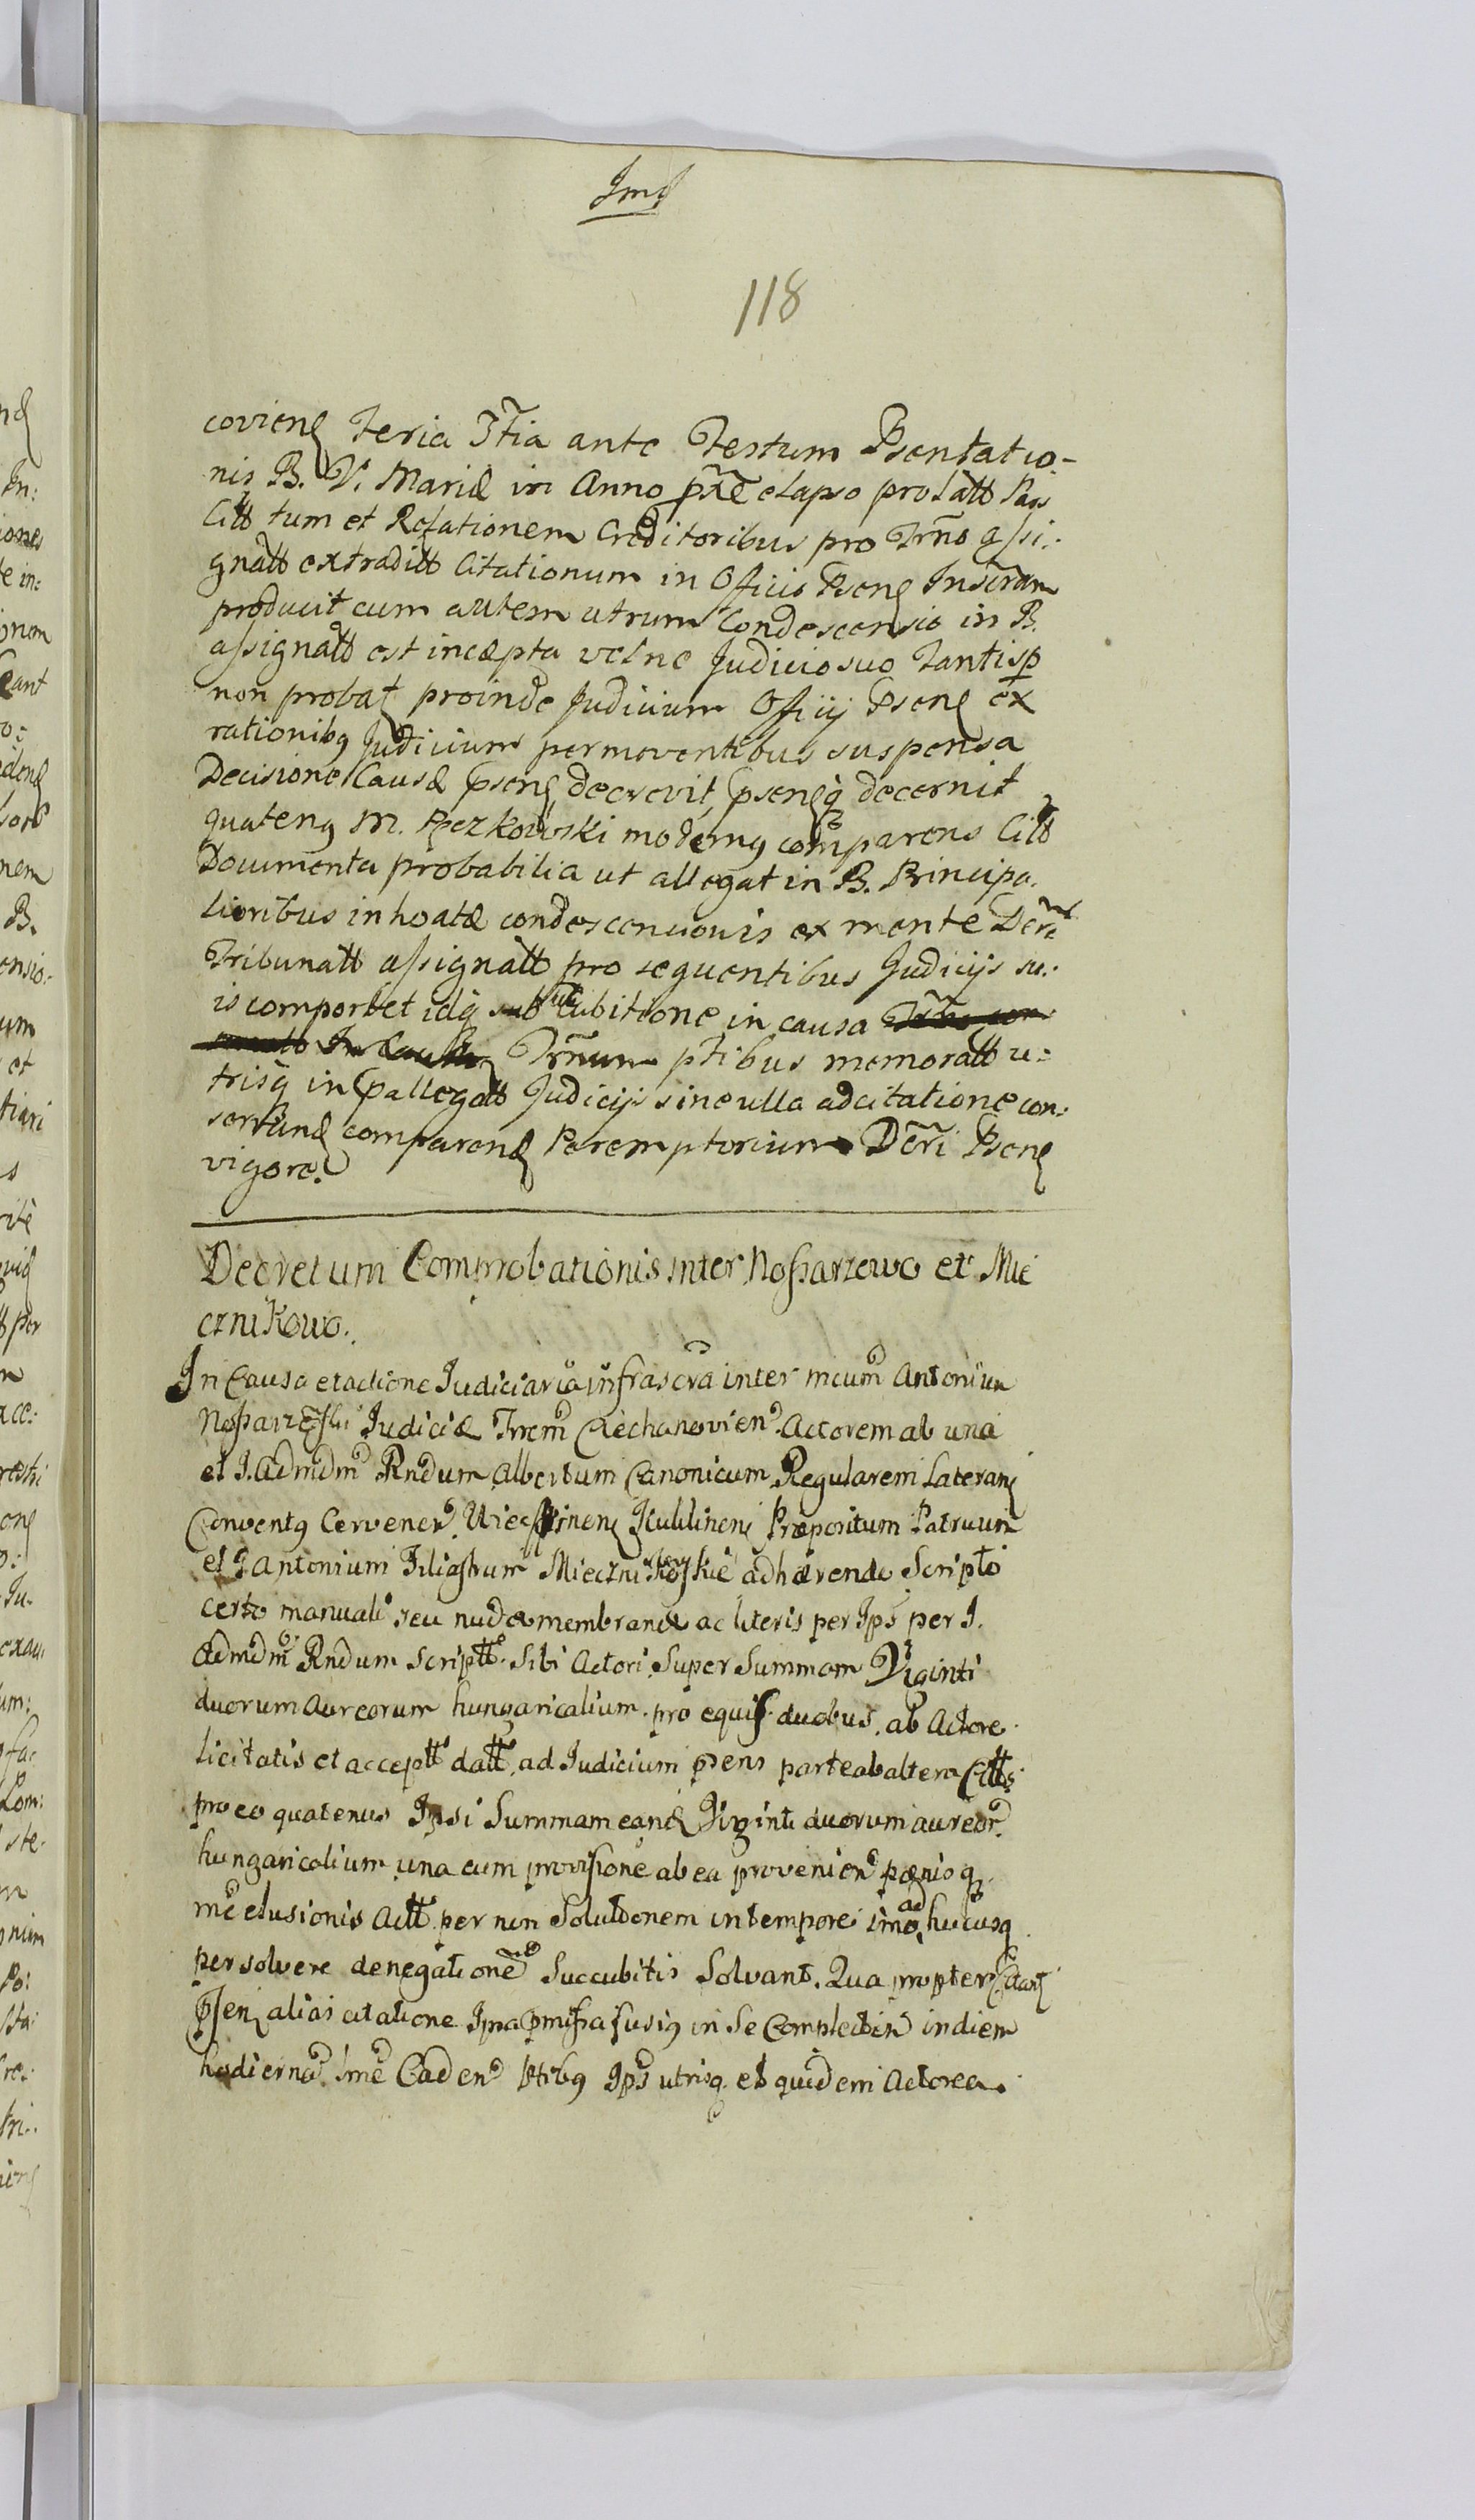 Ims
118
coviens Feria 3tia ante Festum Psentatio-
nis B. V. Mariæ in Anno prte elapso prolatt Pars
Citt tum et Relationem Creditoribus pro Trno assi:
gnatt extraditt Citationum in Officio Psens Inscram
producit cum autem utrum Condescensio in B.
assignatt est incæpta velne Judicio suo Tantisp
non probat proinde Judicium Officij Psens ex
rationibq Judicium permoventibus suspensa
Decisione Causæ psens decrevit, psensq decernit
quatenq M. Rzezkowski modernq comparens Citt
Documenta probabilia ut allegat in B. Principa.
lioribus inhoatæ condescensionis ex mente Decr
Tribunatt assignatt pro sequentibus Judicijs su:
is comportet idq sub succubitione in causa
Trnum ptibus memoratt u:
trisq in pallegatt Judicijs sine ulla adcitatione con:
servand comparend Peremptorium Decri Psens
vigore.
Decretum Comprobationis inter Nossarzewo et Mie
cznikowo.
In Causa et actione Judiciaria infrascra inter mcum Antonium
Nossarzewski Judiciæ Trrem Ciechanovien. Actorem ab una
et J. Admdm Rndum Albertum Canonicum Regularem Laterans
Conventq Cervenen. Præpositum Patruum
et J Antonium Filiastrum Miecznikowskie adhærendo Scripto
certo manuali seu nudæ membranæ ac literis per Ips per J.
Admdm Rndum scriptt. Sibi Actori Super Summam Viginti
duorum Aureorum hungaricalium. pro equis duobus. ab Actore
licitatis et acceptt datt. ad Judicium psens parte ab altera Cittos
pro eo quatenus Ipsi Summam eand Viginti duorum aureor.
hungaricalium una cum provisione ab ea provenien pænisq
mc elusionis Actt. per non Solutionem in tempore imo ad hucusq
persolvere denegatione Succubitis Solvant. Qua propter Citati
Psens alias citatione Ipsa pmissa fusiq in Se Complecten in diem
hodierna lme Caden ptibq Ips utrisq et quidem Actorea.